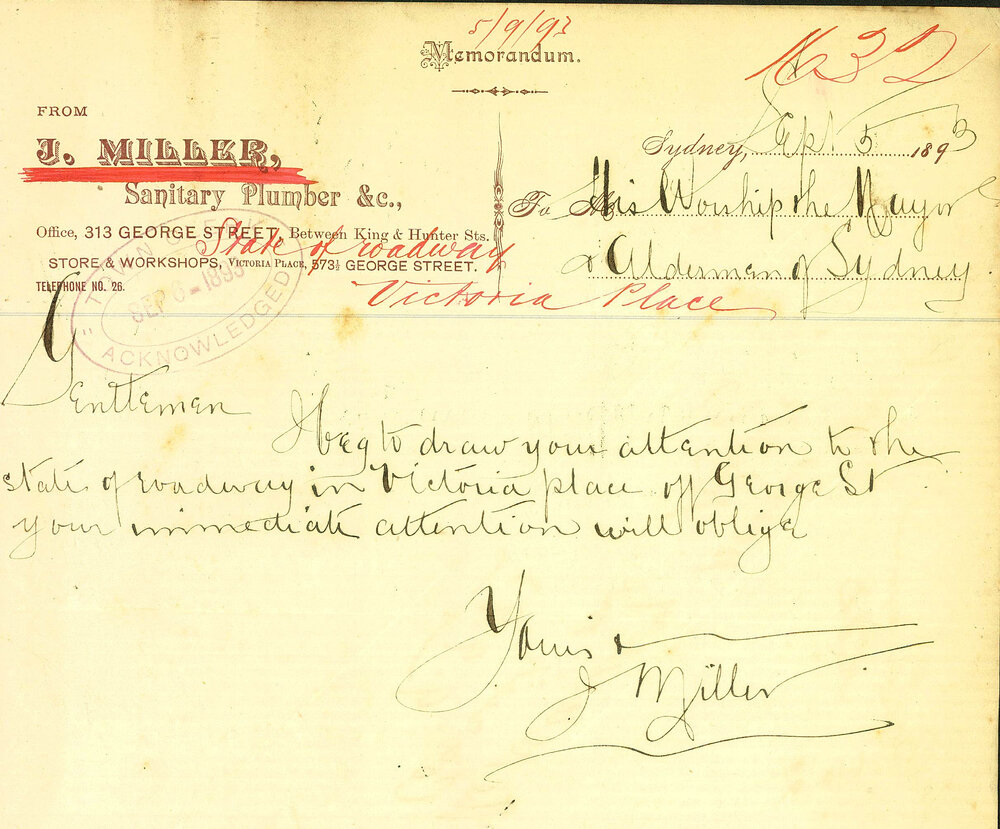 5/9/93
Memorandum.
1632
FROM
J. MILLER,
Sanitary Plumber &c.,
Office, 313 GEORGE STREET, Between King & Hunter Sts.
STORE & WORKSHOPS, VICTORIA PLACE, 573½ GEORGE STREET.
TELEPHONE NO. 26.
Sydney, Sept 5 1893
To His Worship the Mayor
& Aldermen of Sydney
State of roadway
Victoria Place
TOWN CLERK'S
SEP 6 - 1893
ACKNOWLEDGED
Gentlemen
I beg to draw your attention to the
state of roadway in Victoria place off George St
your immediate attention will oblige
Yours &
J Miller